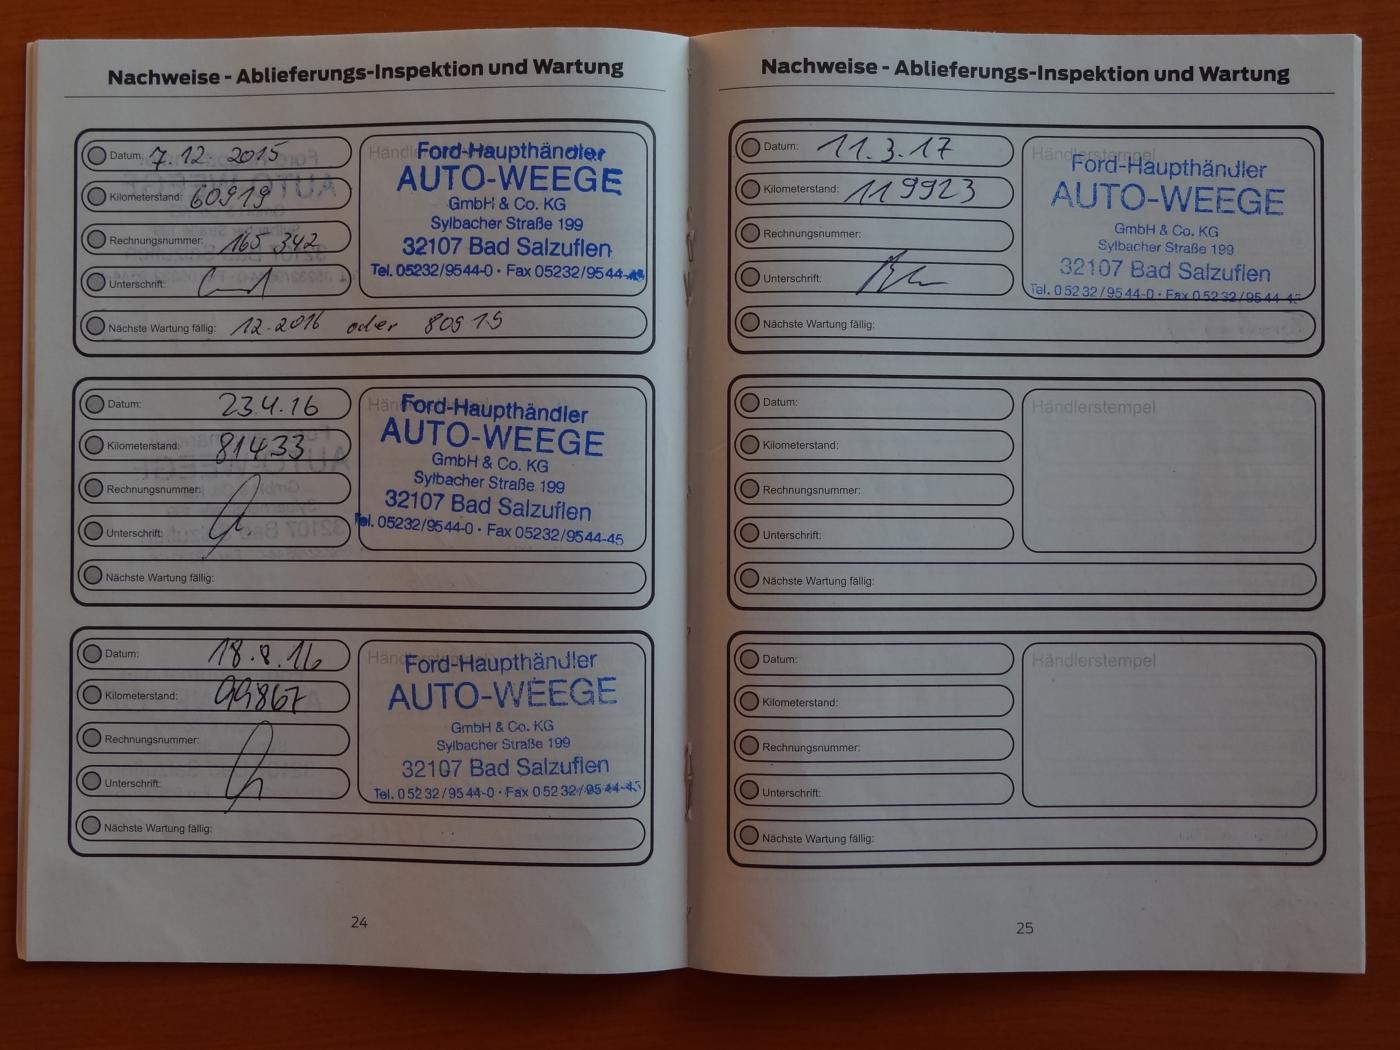 Nachweise - Ablieferungs-Inspektion und Wartung
Datum: 7.12. 2015
Kilometerstand: 60919
Rechnungsnummer: 165 342
Unterschrift:
Händlerstempel
Ford-Haupthändler
AUTO-WEEGE
GmbH & Co. KG
Sylbacher Straße 199
32107 Bad Salzuflen
Tel. 05232/9544-0 · Fax 05232/9544-45
Nächste Wartung fällig: 12.2016 oder 80919
Datum: 23.4.16
Kilometerstand: 81433
Rechnungsnummer:
Unterschrift:
Händlerstempel
Ford-Haupthändler
AUTO-WEEGE
GmbH & Co. KG
Sylbacher Straße 199
32107 Bad Salzuflen
Tel. 05232/9544-0 · Fax 05232/9544-45
Nächste Wartung fällig:
Datum: 18.8.16
Kilometerstand: 99867
Rechnungsnummer:
Unterschrift:
Händlerstempel
Ford-Haupthändler
AUTO-WEEGE
GmbH & Co. KG
Sylbacher Straße 199
32107 Bad Salzuflen
Tel. 05232/9544-0 · Fax 05232/9544-45
Nächste Wartung fällig:
24
Nachweise - Ablieferungs-Inspektion und Wartung
Datum: 11.3.17
Kilometerstand: 119923
Rechnungsnummer:
Unterschrift:
Händlerstempel
Ford-Haupthändler
AUTO-WEEGE
GmbH & Co. KG
Sylbacher Straße 199
32107 Bad Salzuflen
Tel. 05232/9544-0 · Fax 05232/9544-45
Nächste Wartung fällig:
Datum:
Kilometerstand:
Rechnungsnummer:
Unterschrift:
Händlerstempel
Nächste Wartung fällig:
Datum:
Kilometerstand:
Rechnungsnummer:
Unterschrift:
Händlerstempel
Nächste Wartung fällig:
25